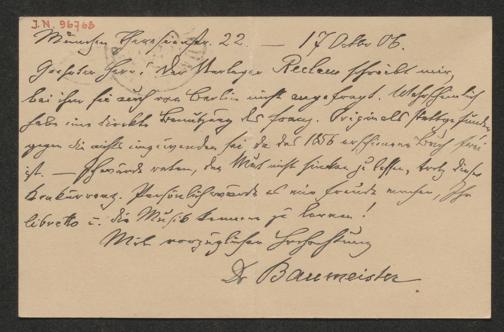 J.N. 96768
München Theresienstr. 22. — 17 Oktbr 06.
Geehrter Herr! Der Verleger Reclam schreibt mir,
bei ihm sei auch von Berlin nicht angefragt. Wahrscheinlich
habe eine direkte Benützung des franz. Originals stattgefunden
gegen die nichts einzuwenden sei da das 1856 erschienene Buch frei
ist. — Ich würde raten, den Mut nicht sinken zu lassen, trotz dieser
Konkurrenz. Persönlich würde es mir Freude machen, Ihr
libretto u. die Musik kennen zu lernen!
Mit vorzüglicher Hochachtung
Dr Baumeister.